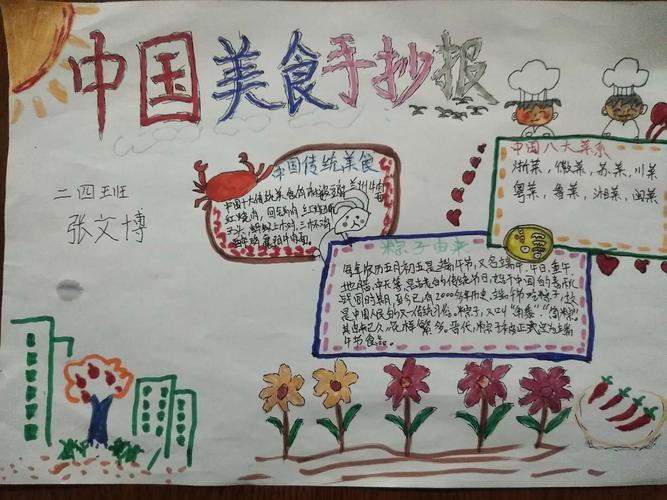 中国美食手抄报
二四班
张文博
中国传统美食
中国十大传统菜
红烧肉，回
子头，蚂蚁上树，三
中国八大菜系
浙菜、徽菜、苏菜、川菜
粤菜、鲁菜、湘菜、闽菜
粽子由来
每年农历五月初五是端午节，又名端午日，重午，
地腊，中天等，是古老的传统节日，始于中国的春秋
战国时期，至今已有2000多年历史。端午节吃粽子，这
是中国人民的又一传统习俗。粽子，又叫“角黍”、“筒粽”
其由来已久，花样繁多。晋代，粽子被正式定为端
午节食品。